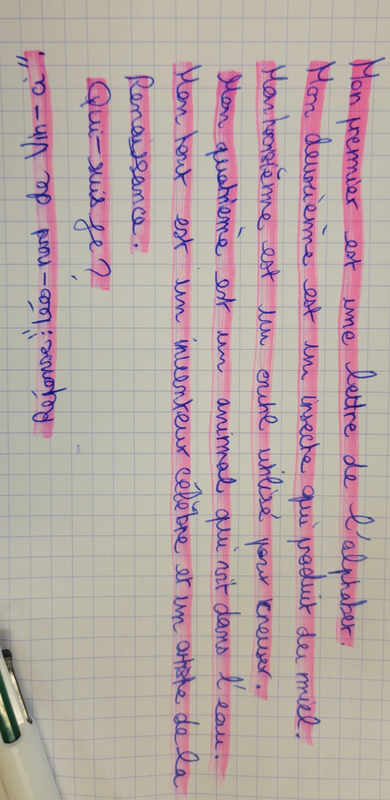 Mon premier est une lettre de l'alphabet.
Mon deuxième est un insecte qui produit du miel.
Mon troisième est un outil utilisé pour creuser.
Mon quatrième est un animal qui vit dans l'eau.
Mon tout est un inventeur célèbre et un artiste de la
Renaissance.
Qui-suis je ?
Réponse: "Léo-nard de Vin-ci"